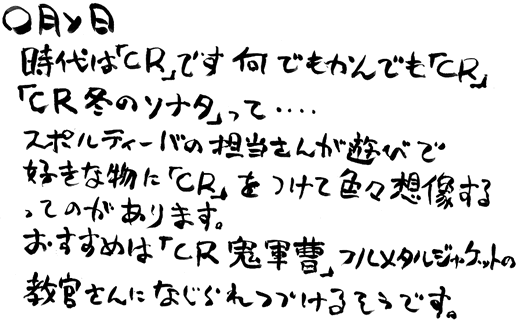 〇月×日
時代は「CR」です 何でもかんでも「CR」
「CR冬のソナタ」って‥‥
スポルティーバの担当さんが遊びで
好きな物に「CR」をつけて色々想像する
ってのがあります。
おすすめは「CR鬼軍曹」フルメタルジャケットの
教官さんになじられつづけるそうです。